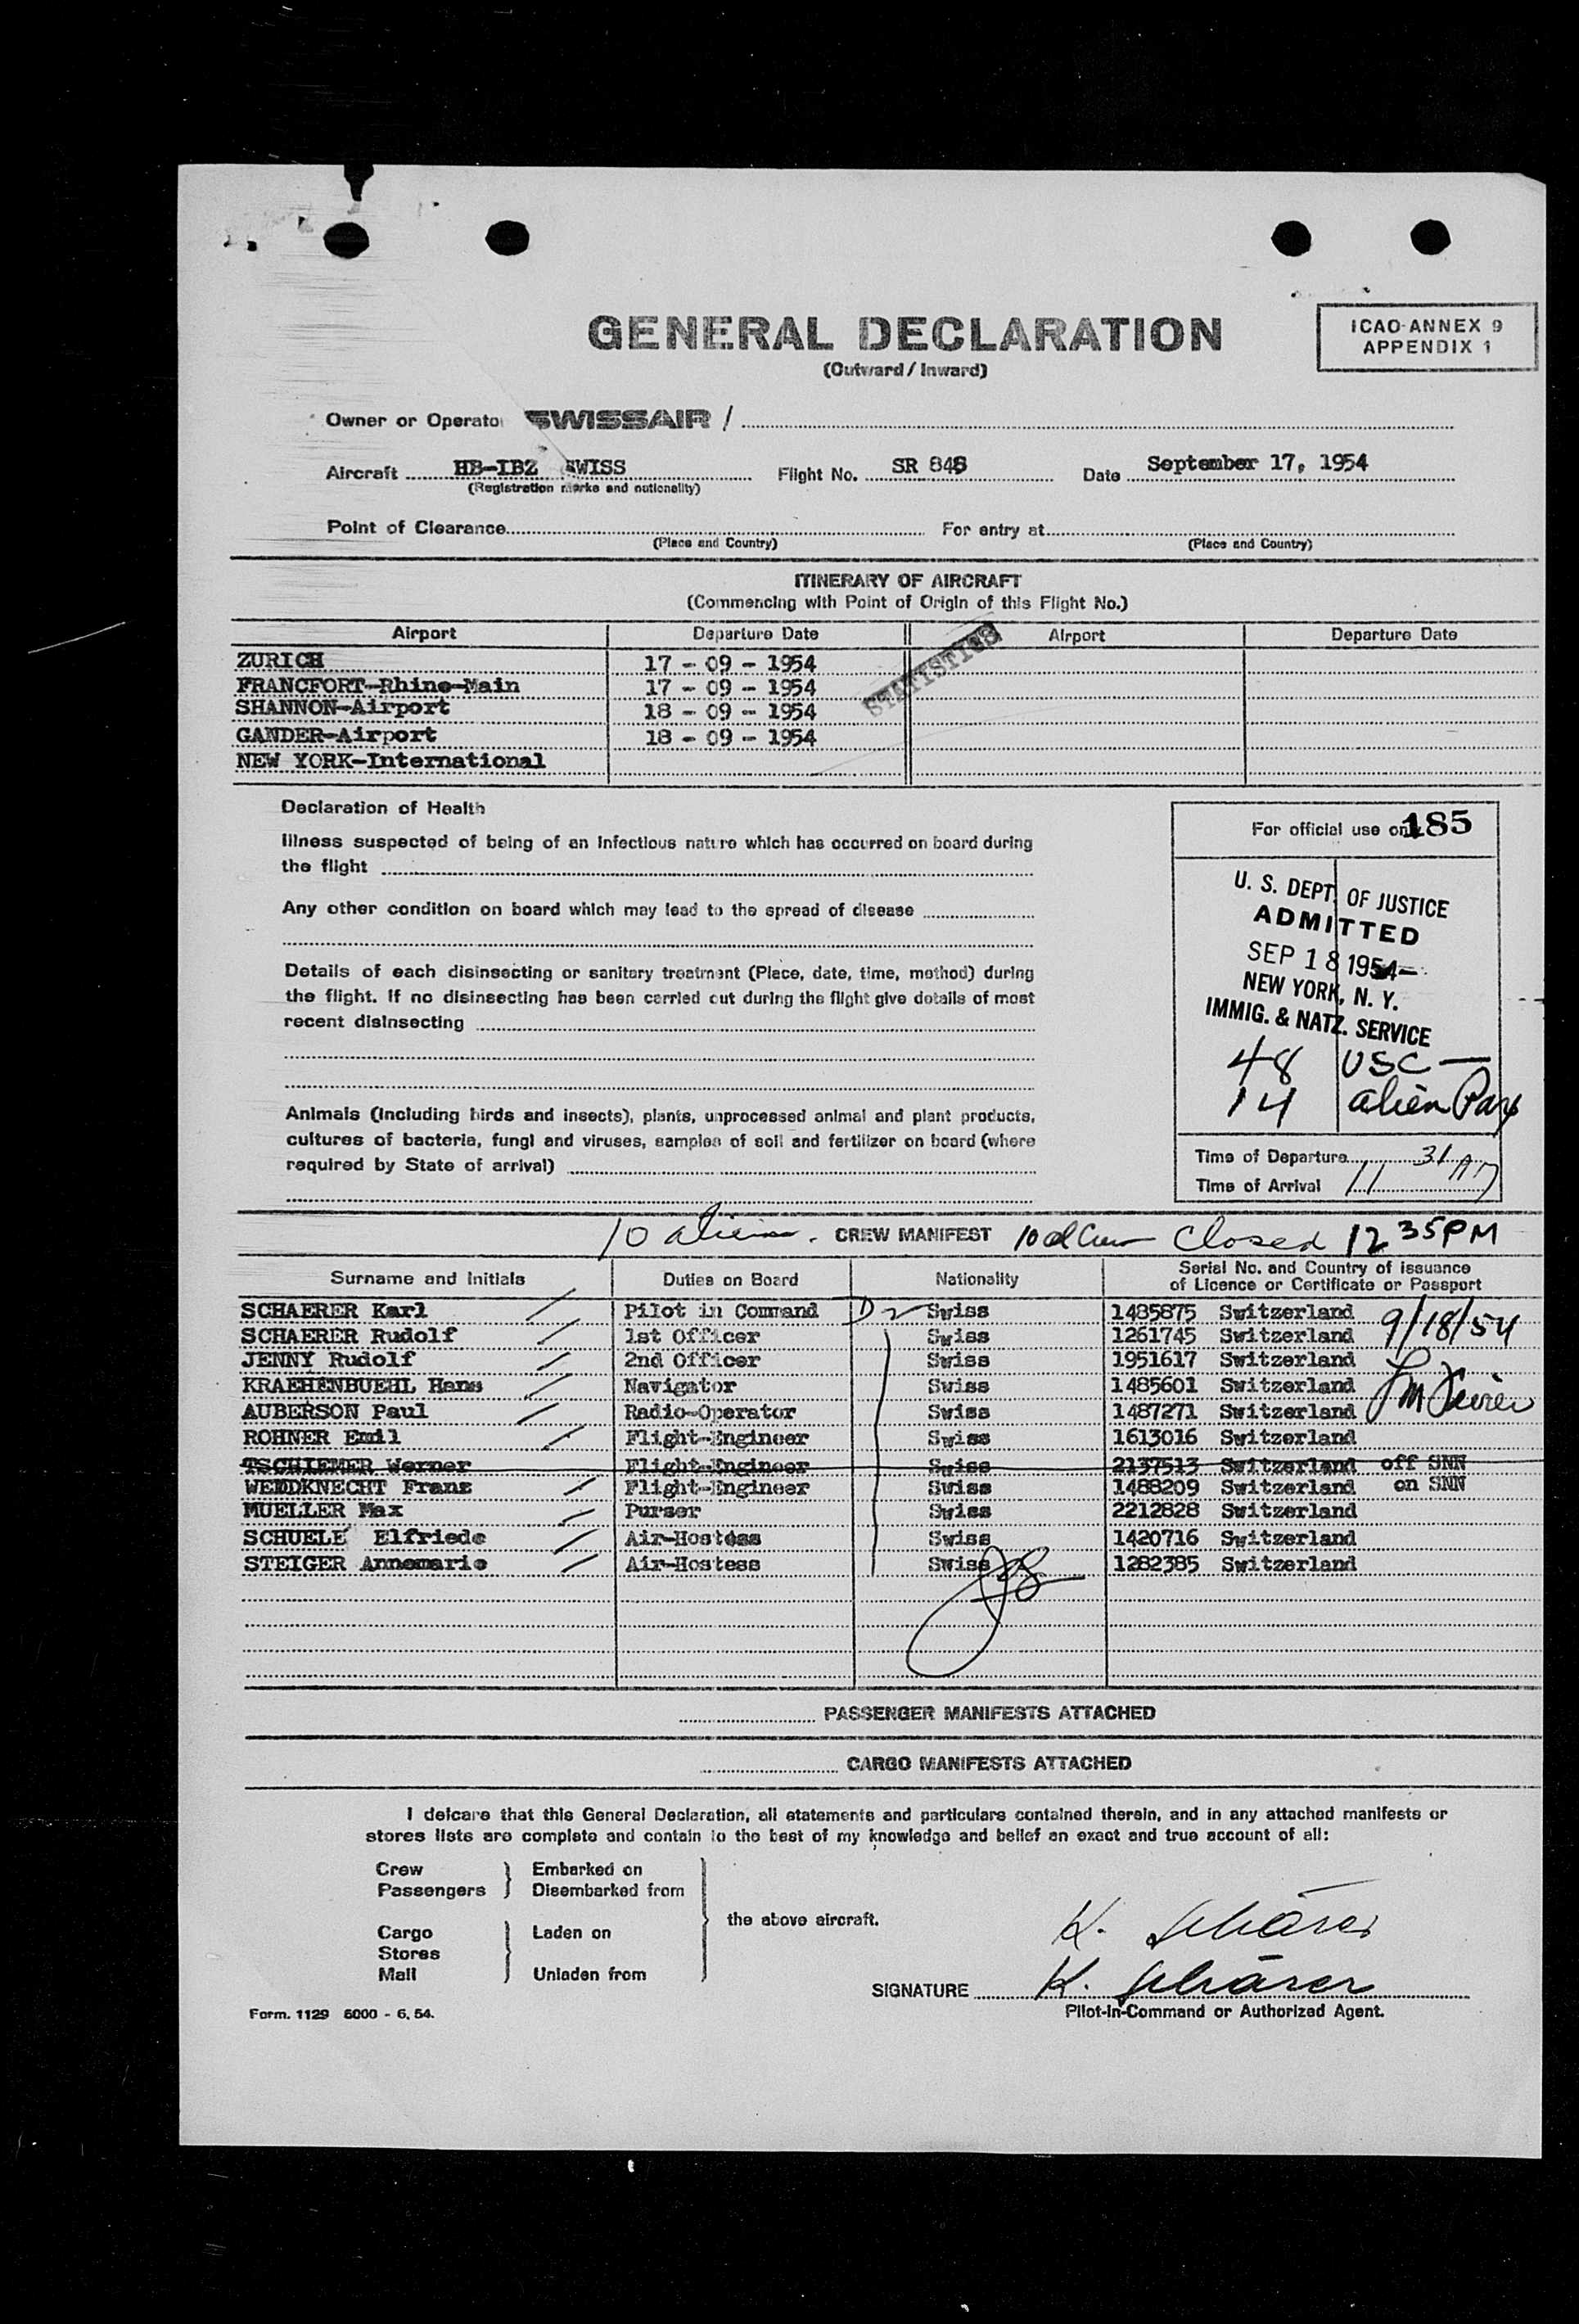 GENERAL DECLARATION
(Outward / Inward)
ICAO-ANNEX 9
APPENDIX 1
Owner or Operator SWISSAIR /
Aircraft HB-IBZ SWISS Flight No. SR 848 Date September 17, 1954
(Registration marks and nationality)
Point of Clearance For entry at
(Place and Country) (Place and Country)
ITINERARY OF AIRCRAFT
(Commencing with Point of Origin of this Flight No.)
Airport Departure Date Airport Departure Date
STATISTICS
ZURICH 17 - 09 - 1954
FRANCFORT-Rhine-Main 17 - 09 - 1954
SHANNON-Airport 18 - 09 - 1954
GANDER-Airport 18 - 09 - 1954
NEW YORK-International
Declaration of Health
Illness suspected of being of an infectious nature which has occurred on board during
the flight
Any other condition on board which may lead to the spread of disease
Details of each disinsecting or sanitary treatment (Place, date, time, method) during
the flight. If no disinsecting has been carried out during the flight give details of most
recent disinsecting
Animals (including birds and insects), plants, unprocessed animal and plant products,
cultures of bacteria, fungi and viruses, samples of soil and fertilizer on board (where
required by State of arrival)
For official use only 185
U. S. DEPT. OF JUSTICE
ADMITTED
SEP 18 1954
NEW YORK, N. Y.
IMMIG. & NATZ. SERVICE
48 USC —
14 alien Pax
Time of Departure
Time of Arrival 11 31 AM
10 aliens. CREW MANIFEST 10 al Crew Closed 12 35 PM
Surname and Initials Duties on Board Nationality Serial No. and Country of issuance
of Licence or Certificate or Passport
SCHAERER Karl Pilot in Command D 2 Swiss 1485875 Switzerland 9/18/54
SCHAERER Rudolf 1st Officer Swiss 1261745 Switzerland
JENNY Rudolf 2nd Officer Swiss 1951617 Switzerland
KRAEHENBUEHL Hans Navigator Swiss 1485601 Switzerland
AUBERSON Paul Radio-Operator Swiss 1487271 Switzerland
ROHNER Emil Flight-Engineer Swiss 1613016 Switzerland
TSCHIEMER Werner Flight-Engineer Swiss 2137513 Switzerland off SNN
WEIDKNECHT Franz Flight-Engineer Swiss 1488209 Switzerland on SNN
MUELLER Max Purser Swiss 2212828 Switzerland
SCHUELE Elfriede Air-Hostess Swiss 1420716 Switzerland
STEIGER Annemarie Air-Hostess Swiss 1282385 Switzerland
PASSENGER MANIFESTS ATTACHED
CARGO MANIFESTS ATTACHED
I delcare that this General Declaration, all statements and particulars contained therein, and in any attached manifests or
stores lists are complete and contain to the best of my knowledge and belief an exact and true account of all:
Crew Embarked on
Passengers Disembarked from
the above aircraft.
Cargo Laden on
Stores
Mail Unladen from
K. Schärer
SIGNATURE K. Schärer
Pilot-in-Command or Authorized Agent.
Form. 1129 6000 - 6. 54.